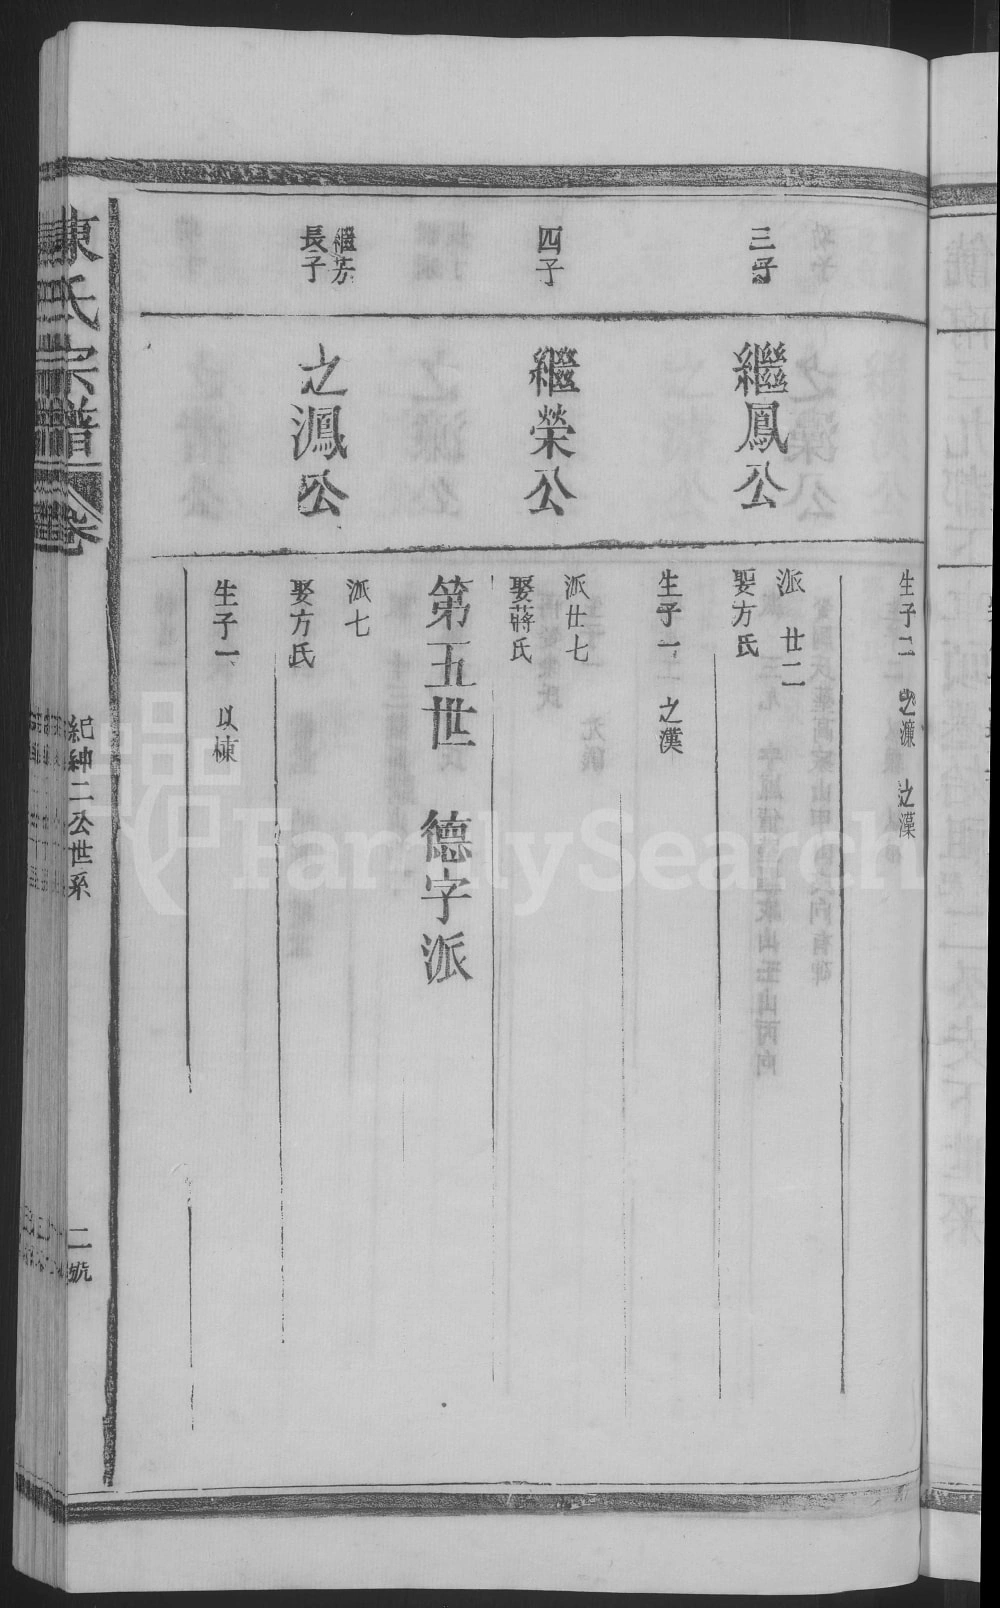 生子二 之濂 之藻
三子
繼鳳公
派廿二
娶方氏
生子一 之漢
四子
繼榮公
派廿七
娶蔣氏
第五世 德字派
繼芳
長子
之鳳公
派七
娶方氏
生子一 以棟
陳氏宗譜
卷
紀紳二公世系
二號
FamilySearch